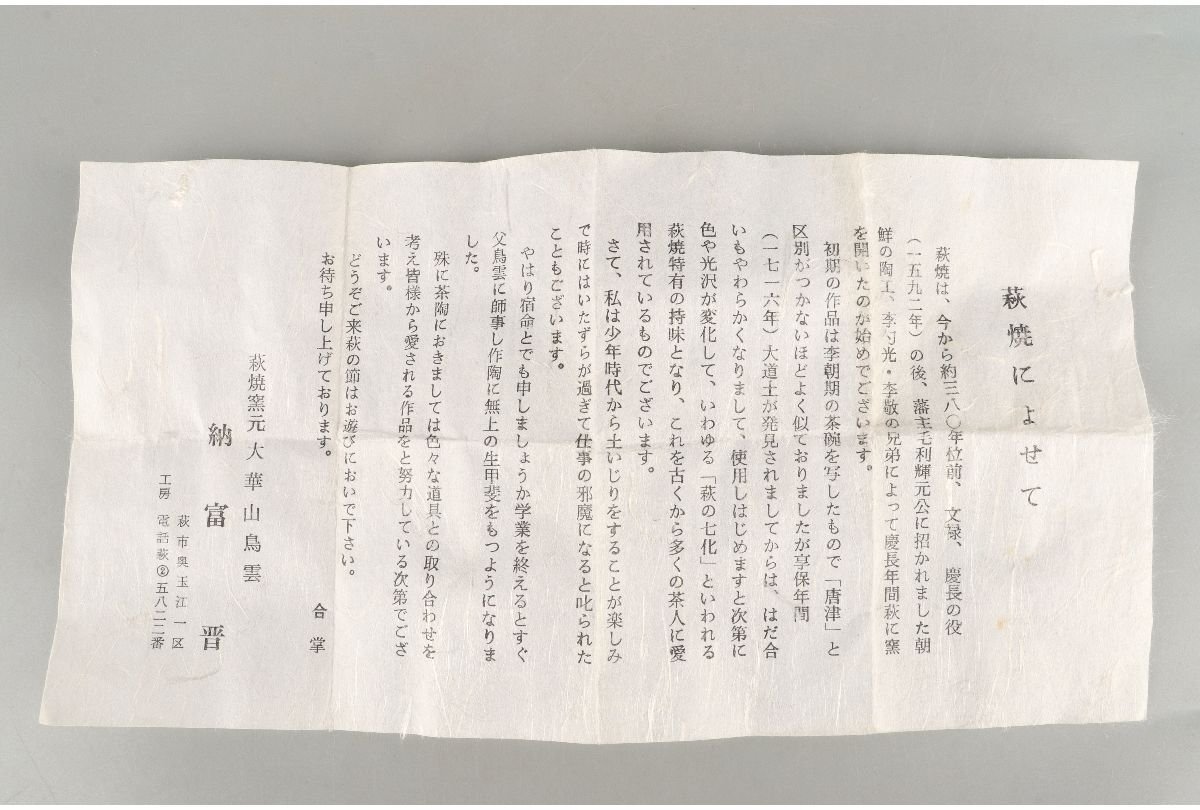 萩焼によせて
萩焼は、今から約三八〇年位前、文禄、慶長の役
（一五九二年）の後、藩主毛利輝元公に招かれました朝
鮮の陶工、李勺光・李敬の兄弟によって慶長年間萩に窯
を開いたのが始めでございます。
初期の作品は李朝期の茶碗を写したもので「唐津」と
区別がつかないほどよく似ておりましたが享保年間
（一七一六年）大道土が発見されましてからは、はだ合
いもやわらかくなりまして、使用しはじめますと次第に
色や光沢が変化して、いわゆる「萩の七化」といわれる
萩焼特有の持味となり、これを古くから多くの茶人に愛
用されているものでございます。
さて、私は少年時代から土いじりをすることが楽しみ
で時にはいたずらが過ぎて仕事の邪魔になると叱られた
こともございます。
やはり宿命とでも申しましょうか学業を終えるとすぐ
父鳥雲に師事し作陶に無上の生甲斐をもつようになりま
した。
殊に茶陶におきましては色々な道具との取り合わせを
考え皆様から愛される作品をと努力している次第でござ
います。
どうぞご来萩の節はお遊びにおいで下さい。
お待ち申し上げております。
合掌
萩焼窯元大華山鳥雲
納富晋
萩市奥玉江一区
工房 電話萩②五八二二番